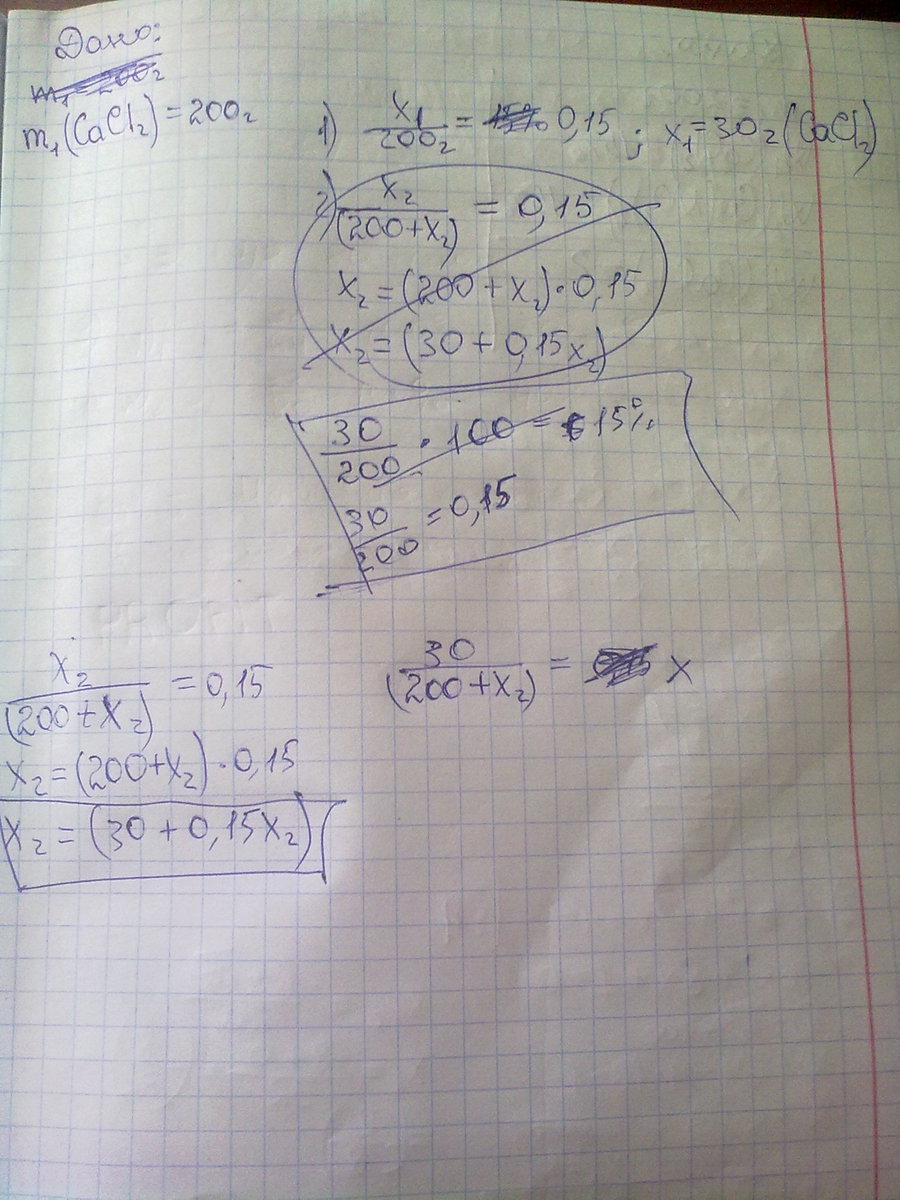 Дано:
m₁ = 200г
m₁(CaCl₂) = 200г
1) x₁/200г = 15% 0,15 ; x₁ = 30г (CaCl₂)
2) x₂/(200+x₂) = 0,15
x₂ = (200 + x₂) · 0,15
x₂ = (30 + 0,15x₂)
30/200 · 100 = 15%
30/200 = 0,15
x₂/(200+x₂) = 0,15
x₂ = (200+x₂) · 0,15
x₂ = (30 + 0,15x₂)
30/(200+x₂) = x